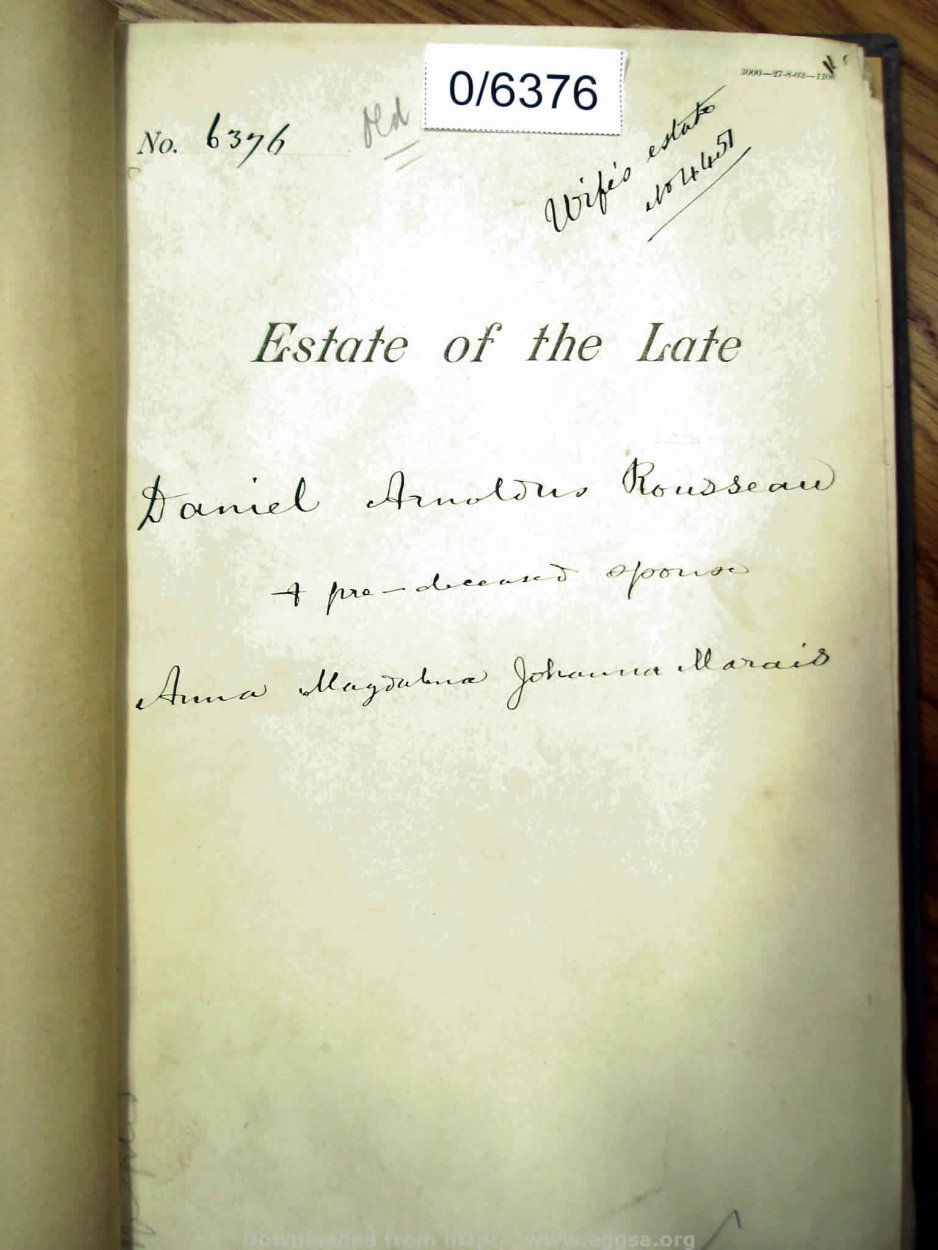 3000—27-8-02—1108
0/6376
No. 6376
Old
Wife's estate
No 4451
Estate of the Late
Daniel Arnoldus Rousseau
& pre-deceased spouse
Anna Magdalena Johanna Marais
Downloaded from http://www.eggsa.org